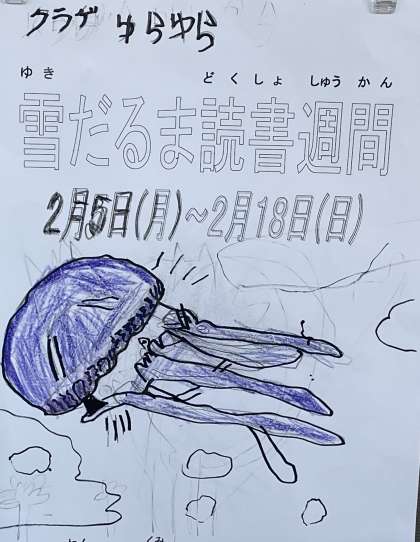 クラゲ ゆらゆら
ゆき どくしょ しゅうかん
雪だるま読書週間
2月5日(月)~2月18日(日)